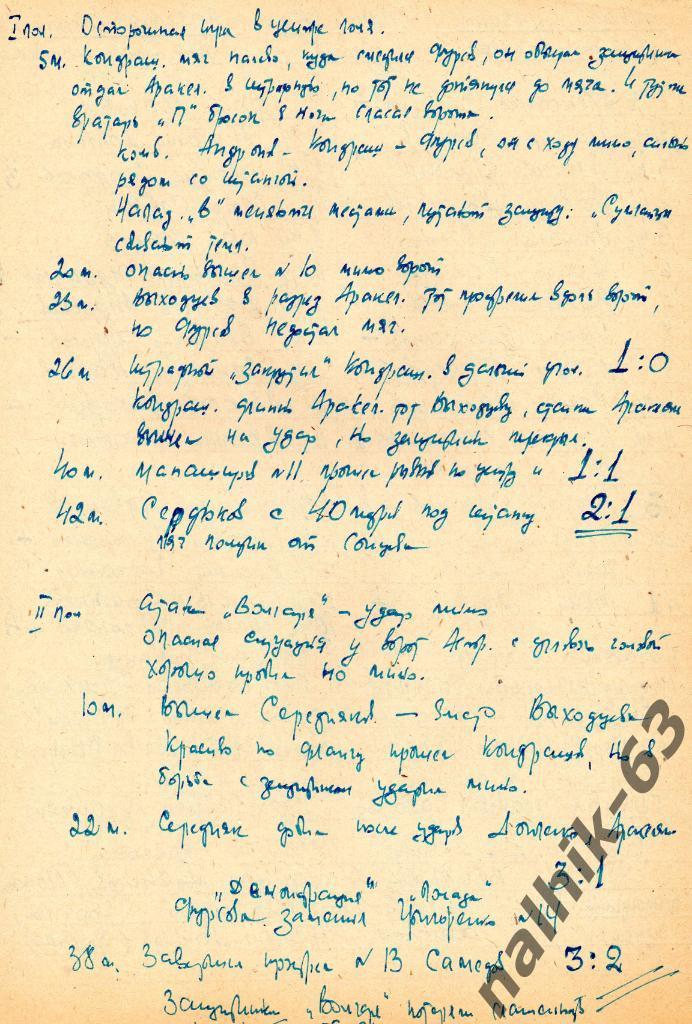 I пол. Осторожная игра в центре поля.
5м. Кондраш. мяч налево, куда сместился Фурсов, он обыграл защитника
отдал Аракел. в штрафную, но тот не дотянулся до мяча. И тут же
вратарь „П" бросок в ноги спасает ворота.
комб. Андронов - Кондраш - Фурсов, он с ходу мимо, сильно
рядом со штангой.
Напад. „В" меняются местами, путают защиту:
сбивают темп.
20 м. опасн вышел N 10 мимо ворот
23 м. Выходцев в разрез Аракел. Тот прострелил вдоль ворот,
но Фурсов недостал мяч.
26 м штрафной „закрутил" Кондраш. в дальний угол. 1:0
Кондраш. длинный Аракел. тот Выходцеву, Аракелян
вышел на удар, но защитник перекрыл.
40 м. N 11 прошел рывком по центру и 1:1
42 м. Сердюков с 40 метров под штангу 2:1
мяч получил от
II пол Атаки „Волгаря" - удар мимо
опасная ситуация у ворот Астр. с углового головой
хорошо пробил но мимо.
10 м. Вышел Середняков - вместо Выходцева
Красиво по флангу прошел Кондрашов, но в
борьбе с защитником ударил мимо.
22 м. Середняк добил после ударов Аракелян
3:1
„Демонстрация"
Фурсова заменил Григоренко N 14
38 м. Завершил прорыв N 13 Самедов 3:2
Защитники „Волгаря" потеряли
nalhik-63